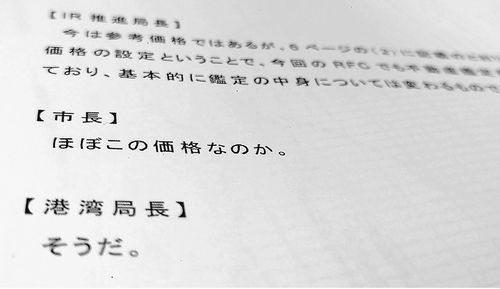 【IR推進局長】
今は参考価格ではあるが、6ページの(2)に
価格の設定ということで、今回のRFCでも不動産鑑定
ており、基本的に鑑定の中身については変わるもので
【市長】
ほぼこの価格なのか。
【港湾局長】
そうだ。